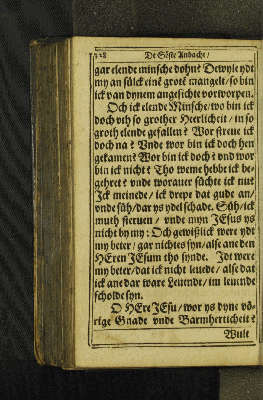 128 De Söste Andacht/
gar elende minsche dohnē Dewyle ydt
my an sülck einē grotē mangelt/ so bin
ick van dynem angesichte vorworpen.
Och ick elende Minsche/ wo bin ick
doch vth so grother Heerlicheit/ in so
groth elende gefallen? Wor streue ick
doch na? Vnde wor bin ick doch hen
gekamen? Wor bin ick doch? vnd wor
bin ick nicht? Tho weme hebbe ick be-
gehret? vnde worauer süchte ick nu?
Ick meinede/ ick drepe dat gude an/
vnde süh/ dar ys ydel schade. Süh/ ick
muth steruen/ vnde myn JEsus ys
nicht by my: Och gewißlick were ydt
my beter/ gar nichtes syn/ alse ane den
HEren JEsum tho synde. Jdt were
my beter/ dat ick nicht leuede/ alse dat
ick ane dar ware Leuende/ im leuende
scholde syn.
O HEre JEsu/ wor ys dyne vö-
rige Gnade vnde Barmherticheit?
Wult